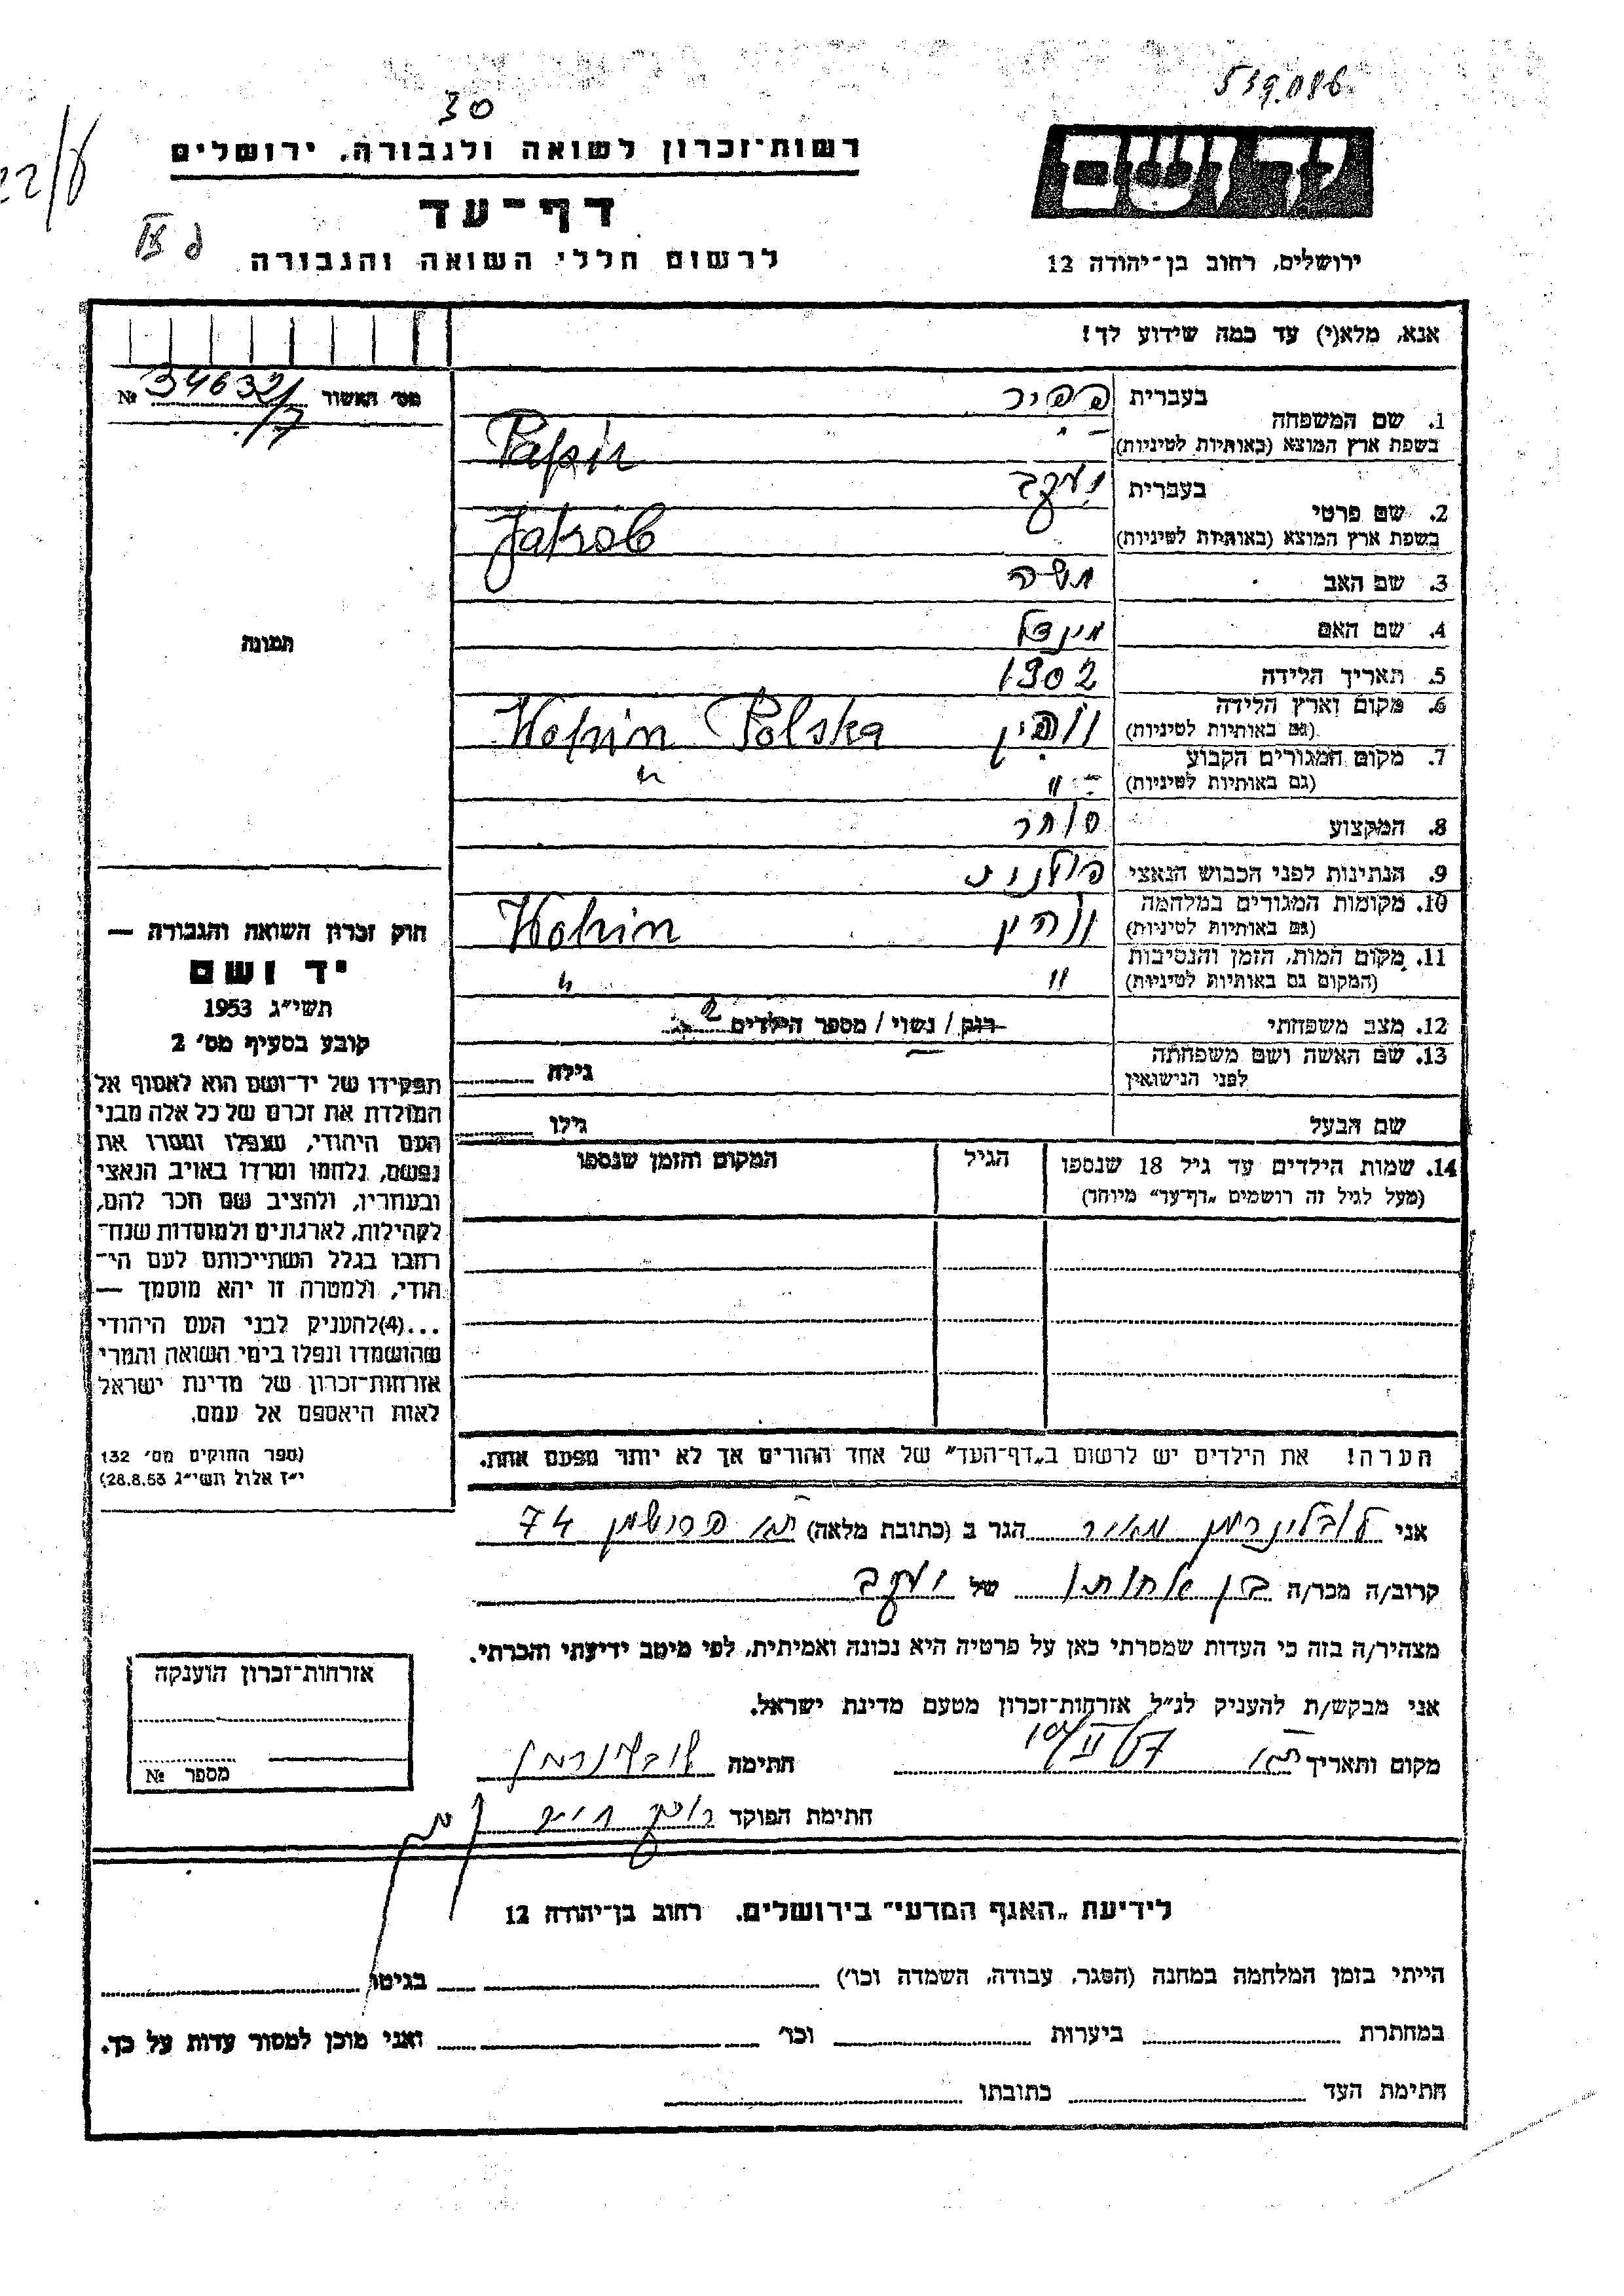 539.086
30
יד ושם
רשות־זכרון לשואה ולגבורה, ירושלים
דף־עד
לרשום חללי השואה והגבורה
ירושלים, רחוב בן־יהודה 12
אנא, מלא(י) עד כמה שידוע לך!
מס׳ האשור № 34632/
7
1. שם המשפחה בעברית פפיר
בשפת ארץ המוצא (באותיות לטיניות) Papir
2. שם פרטי בעברית יעקב
בשפת ארץ המוצא (באותיות לטיניות) Jakób
3. שם האב משה
4. שם האם מינדל
5. תאריך הלידה 1902
6. מקום וארץ הלידה ווהין Wohin Polska
(גם באותיות לטיניות)
7. מקום המגורים הקבוע
(גם באותיות לטיניות) " "
8. המקצוע סוחר
9. הנתינות לפני הכבוש הנאצי פולנית
10. מקומות המגורים במלחמה ווהין Wohin
(גם באותיות לטיניות)
11. מקום המות, הזמן והנסיבות
(המקום גם באותיות לטיניות) " "
12. מצב משפחתי רווק / נשוי / מספר הילדים 2
13. שם האשה ושם משפחתה
לפני הנישואין גילה
שם הבעל גילו
14. שמות הילדים עד גיל 18 שנספו הגיל המקום והזמן שנספו
(מעל לגיל זה רושמים „דף־עד" מיוחד)
הערה! את הילדים יש לרשום ב„דף־העד" של אחד ההורים אך לא יותר מפעם אחת.
תמונה
חוק זכרון השואה והגבורה —
יד ושם
תשי״ג 1953
קובע בסעיף מס׳ 2
תפקידו של יד־ושם הוא לאסוף אל
המולדת את זכרם של כל אלה מבני
העם היהודי, שנפלו ומסרו את
נפשם, נלחמו ומרדו באויב הנאצי
ובעוזריו, ולהציב שם וזכר להם,
לקהילות, לארגונים ולמוסדות שנח־
רבו בגלל השתייכותם לעם הי־
הודי, ולמטרה זו יהא מוסמך —
...(4)להעניק לבני העם היהודי
שהושמדו ונפלו בימי השואה והמרי
אזרחות־זכרון של מדינת ישראל
לאות היאספם אל עמם.
(ספר החוקים מס׳ 132
י״ז אלול תשי״ג 28.8.53)
אני לובלינרמן מאיר הגר ב (כתובת מלאה) ת"א 74
קרוב/ה מכר/ה בן אחותו של יעקב
מצהיר/ה בזה כי העדות שמסרתי כאן על פרטיה היא נכונה ואמיתית, לפי מיטב ידיעתי והכרתי.
אני מבקש/ת להעניק לנ״ל אזרחות־זכרון מטעם מדינת ישראל.
מקום ותאריך ת"א 10/II 57 חתימה לובלינרמן
חתימת הפוקד
אזרחות־זכרון הוענקה
מספר №
לידיעת „האגף המדעי" בירושלים. רחוב בן־יהודה 12
הייתי בזמן המלחמה במחנה (הסגר, עבודה, השמדה וכו׳) בגיטו
במחתרת ביערות וכו׳ ואני מוכן למסור עדות על כך.
חתימת העד כתובתו